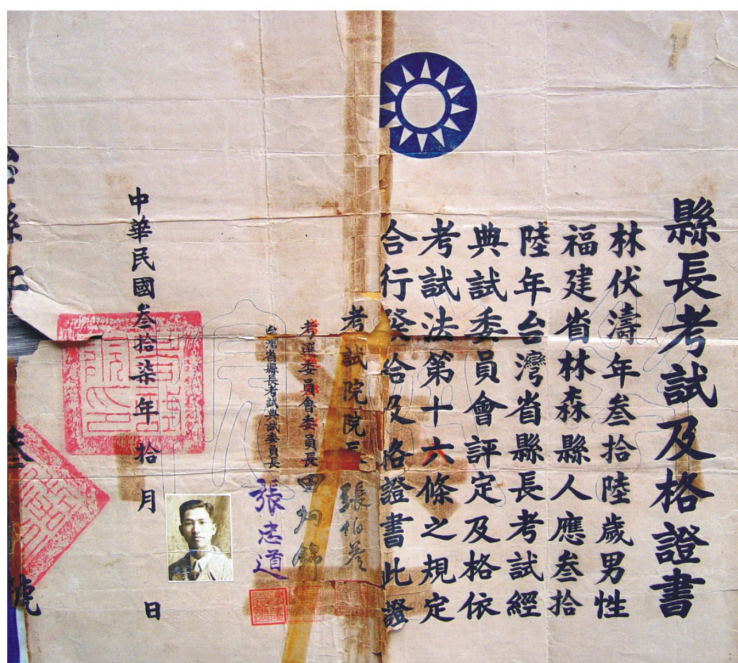 縣長考試及格證書
林伏濤年叁拾陸歲男性
福建省林森縣人應叁拾
陸年台灣省縣長考試經
典試委員會評定及格依
考試法第十六條之規定
合行發給及格證書此證
考試院院
張伯苓
考選委員會委員長
田炯錦
台灣省縣長考試典試委員長
張忠道
中華民國叁拾柒年拾月 日
號